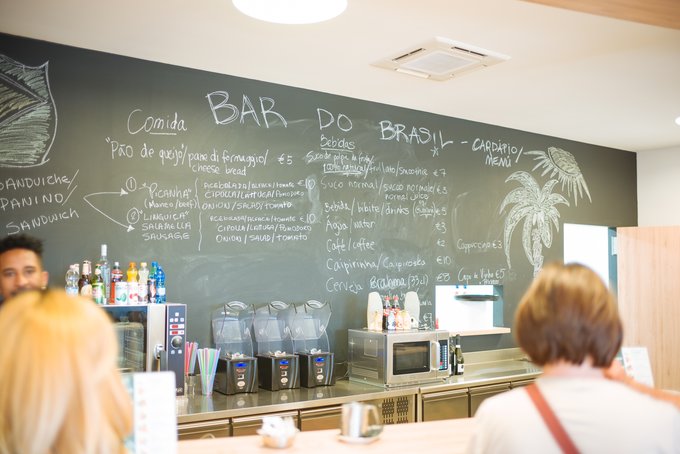 BAR DO BRASIL - CARDÁPIO/
MENÙ
Comida
"Pão de queijo"/pane di formaggio/ €5
cheese bread
SANDUICHE/
PANINO/
SANDWICH
1) "PICANHA"
(Manzo/Beef)
ACEBOLADA/ALFACE/TOMATE €10
CIPOLLA/LATTUGA/POMODORO
ONION/SALAD/TOMATO
2) "LINGUIÇA"
SALAMELLA
SAUSAGE
ACEBOLADA/ALFACE/TOMATE €10
CIPOLLA/LATTUGA/POMODORO
ONION/SALAD/TOMATO
Bebidas
Suco de polpa de fruta/
100% natural/frullato/smoothie €7
Suco normal/succo normale/
normal juice
Bebida/bibite/drinks
Água/water
Café/coffee
Caipirinha/Caipiroska
Cerveja Brahma (33cl)
Cappuccino €3
€5